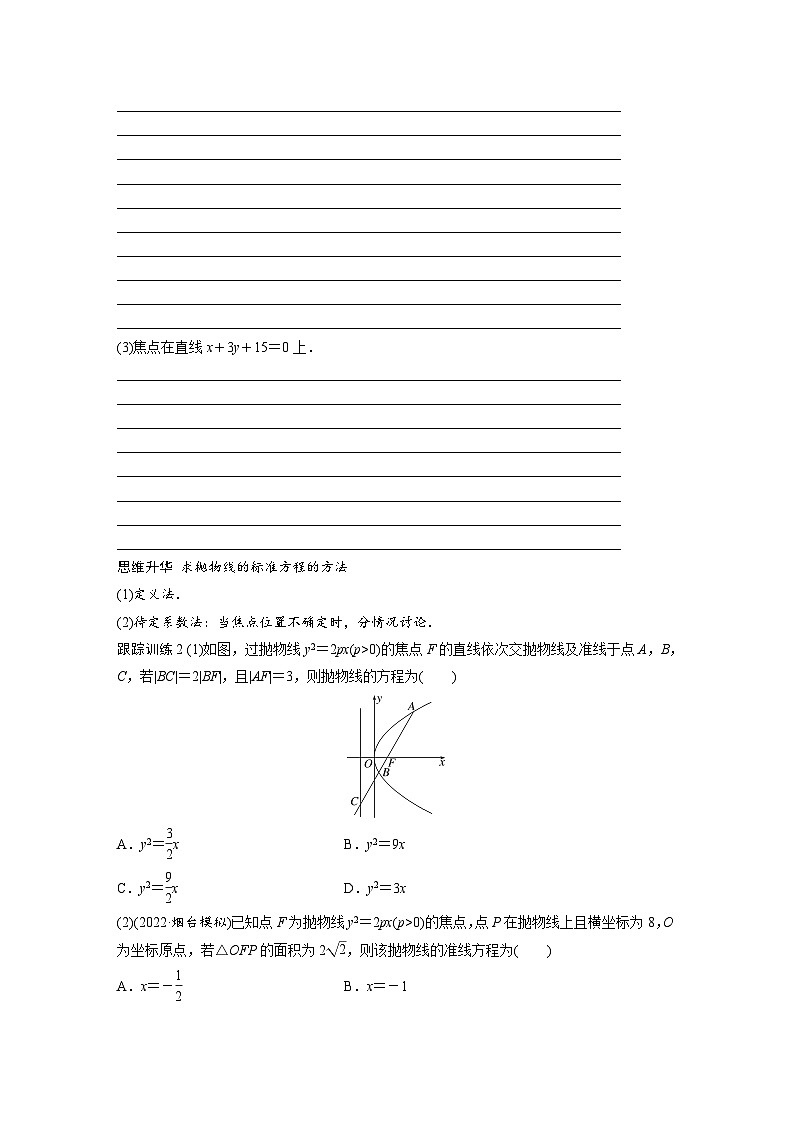 (3)焦点在直线 x+3y+15=0 上.
思维升华 求抛物线的标准方程的方法
(1)定义法.
(2)待定系数法：当焦点位置不确定时，分情况讨论.
跟踪训练 2 (1)如图，过抛物线 y²=2px(p>0)的焦点 F 的直线依次交抛物线及准线于点 A，B，
C，若|BC|=2|BF|，且|AF|=3，则抛物线的方程为(　　)
y
A
O F x
B
C
A．y²=3/2x B．y²=9x
C．y²=9/2x D．y²=3x
(2)(2022·烟台模拟)已知点 F 为抛物线 y²=2px(p>0)的焦点，点 P 在抛物线上且横坐标为 8，O
为坐标原点，若△OFP 的面积为 2√2，则该抛物线的准线方程为(　　)
A．x=-1/2 B．x=-1